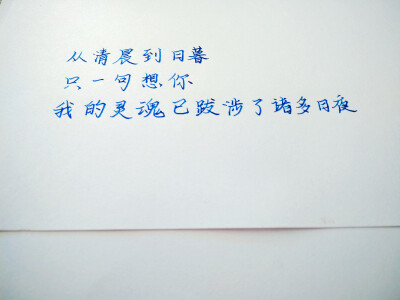 从清晨到日暮
只一句想你
我的灵魂已跋涉了诸多日夜